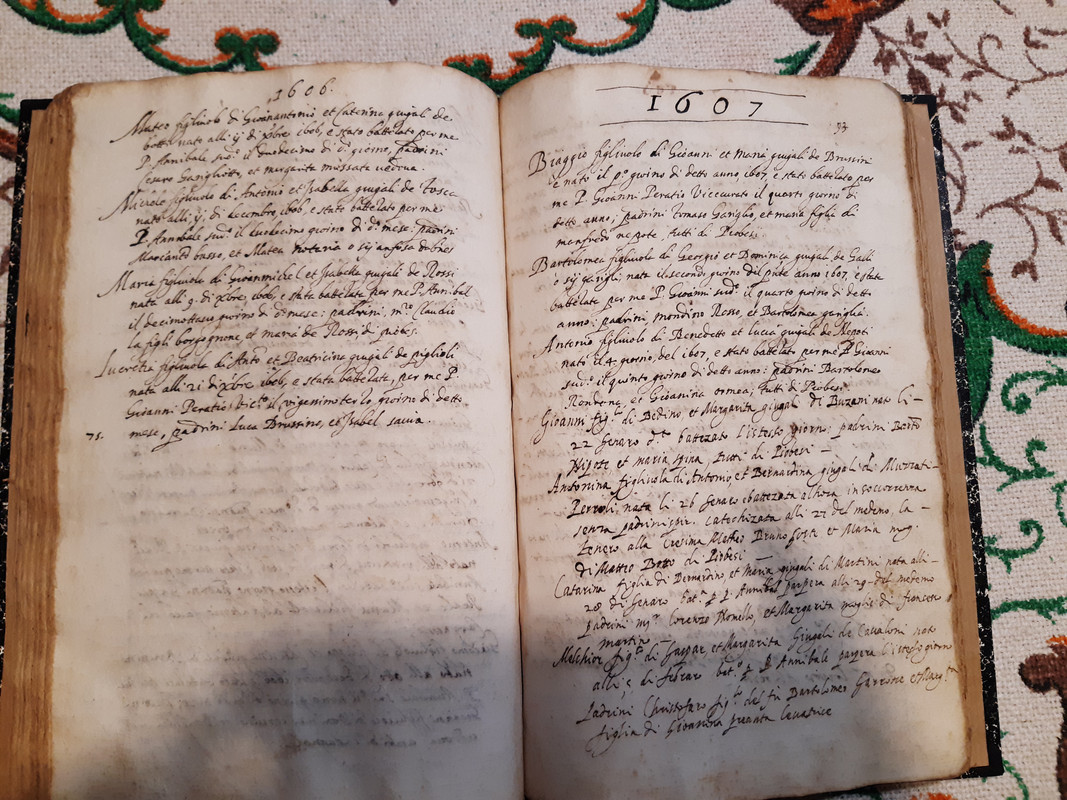 1606.
Mateo figliuolo di Gioanantonio et Caterina giugali de
nato alli di xbre 1606, e stato battezato per me
P. Annibale sud.º il duodecimo di d.º giorno, padrini
Gariglietto, et margarita mussata vedova.
Michele figliuolo di Antonio et Isabella giugali de Tosca
nato alli di decembre, 1606, e stato battezato per me
P. Annibale sud.º il duodecimo giorno di d.º mese: padrini
Marcanto russo, et Matea
Maria figliuola di Gioanmichel et Isabella giugali de Rossi
nata alli 9. di xbre, 1606, e stata battezata per me P. Annibal
il decimottavo giorno di d.º mese: padrini, m.º Claudio
la figli borgognone et maria de Rossi,
Lucretia figliuola di Anto et Beatricina giugali de piglioli
nata alli 21 di xbre 1606, e stata battezata, per me P.
Gioanni Peratio Vic.º il vigesimoterzo giorno di detto
75. mese, padrini Luca Brussino, et Isabel
1607
93
Biaggio figliuolo di Gioanni et Maria giugali de Brussini
e nato il p.º giorno di detto anno, 1607, e stato battezato per
me P. Gioanni Peratio Vicecurato il quarto giorno di
detto anno; padrini Tomaso Gariglio, et maria figlia di
manfredo nepote, tutti di Piobesi.
Bartolomea figliuola di Georgio et Dominica giugali de Galli
o sij garigli; nata il secondo giorno del pnte anno 1607, e stata
battezata per me P. Gioanni sud.º il quarto giorno di detto
anno: padrini mondino Rosso, et Bartolomea gariglia.
Antonio figliuolo di Benedetto et Lucia giugali de Nepoti
nato il 4. giorno, del 1607, e stato battezato per me P. Gioanni
sud.º il quinto giorno di detto anno: padrini Bartolomeo
et Gioanina ormea; tutti di Piobesi.
Gioanni fig.lo di Bedino et Margarita giugali di Buzani nato li -
22 Genaro d.º battezato l'istesso giorno: padrini Borto
Nipote et maria spina, tutti di Piobesi -
Antonina figliuola di Antonio, et Bernardina giugali de Muzzati -
nata li 26 Genaro e battezata alhora in soccorrenza
senza padrini Catechizata alli 27 del medemo, la -
tenero alla Cresima Matteo Bruno Coste et Maria mog.
di Matteo Botto di Piobesi -
Catarina figlia di Bernardino, et Maria giugali di Martini nata alli -
28 di Genaro bat.ª p. P. Annibal parpera alli 29 del medemo
padrini m.º Lorenzo et Margarita moglie di francesco
martin -
Melchior fig.º di Gaspar et Margarita Giugali de Cavaloni nato
alli 5 di febraro bat.º p. P. Annibale parpera l'istesso giorno
Padrini Christofaro fig.lo del fu Bartolomeo Garrone et
figlia di Giovanni levatrice